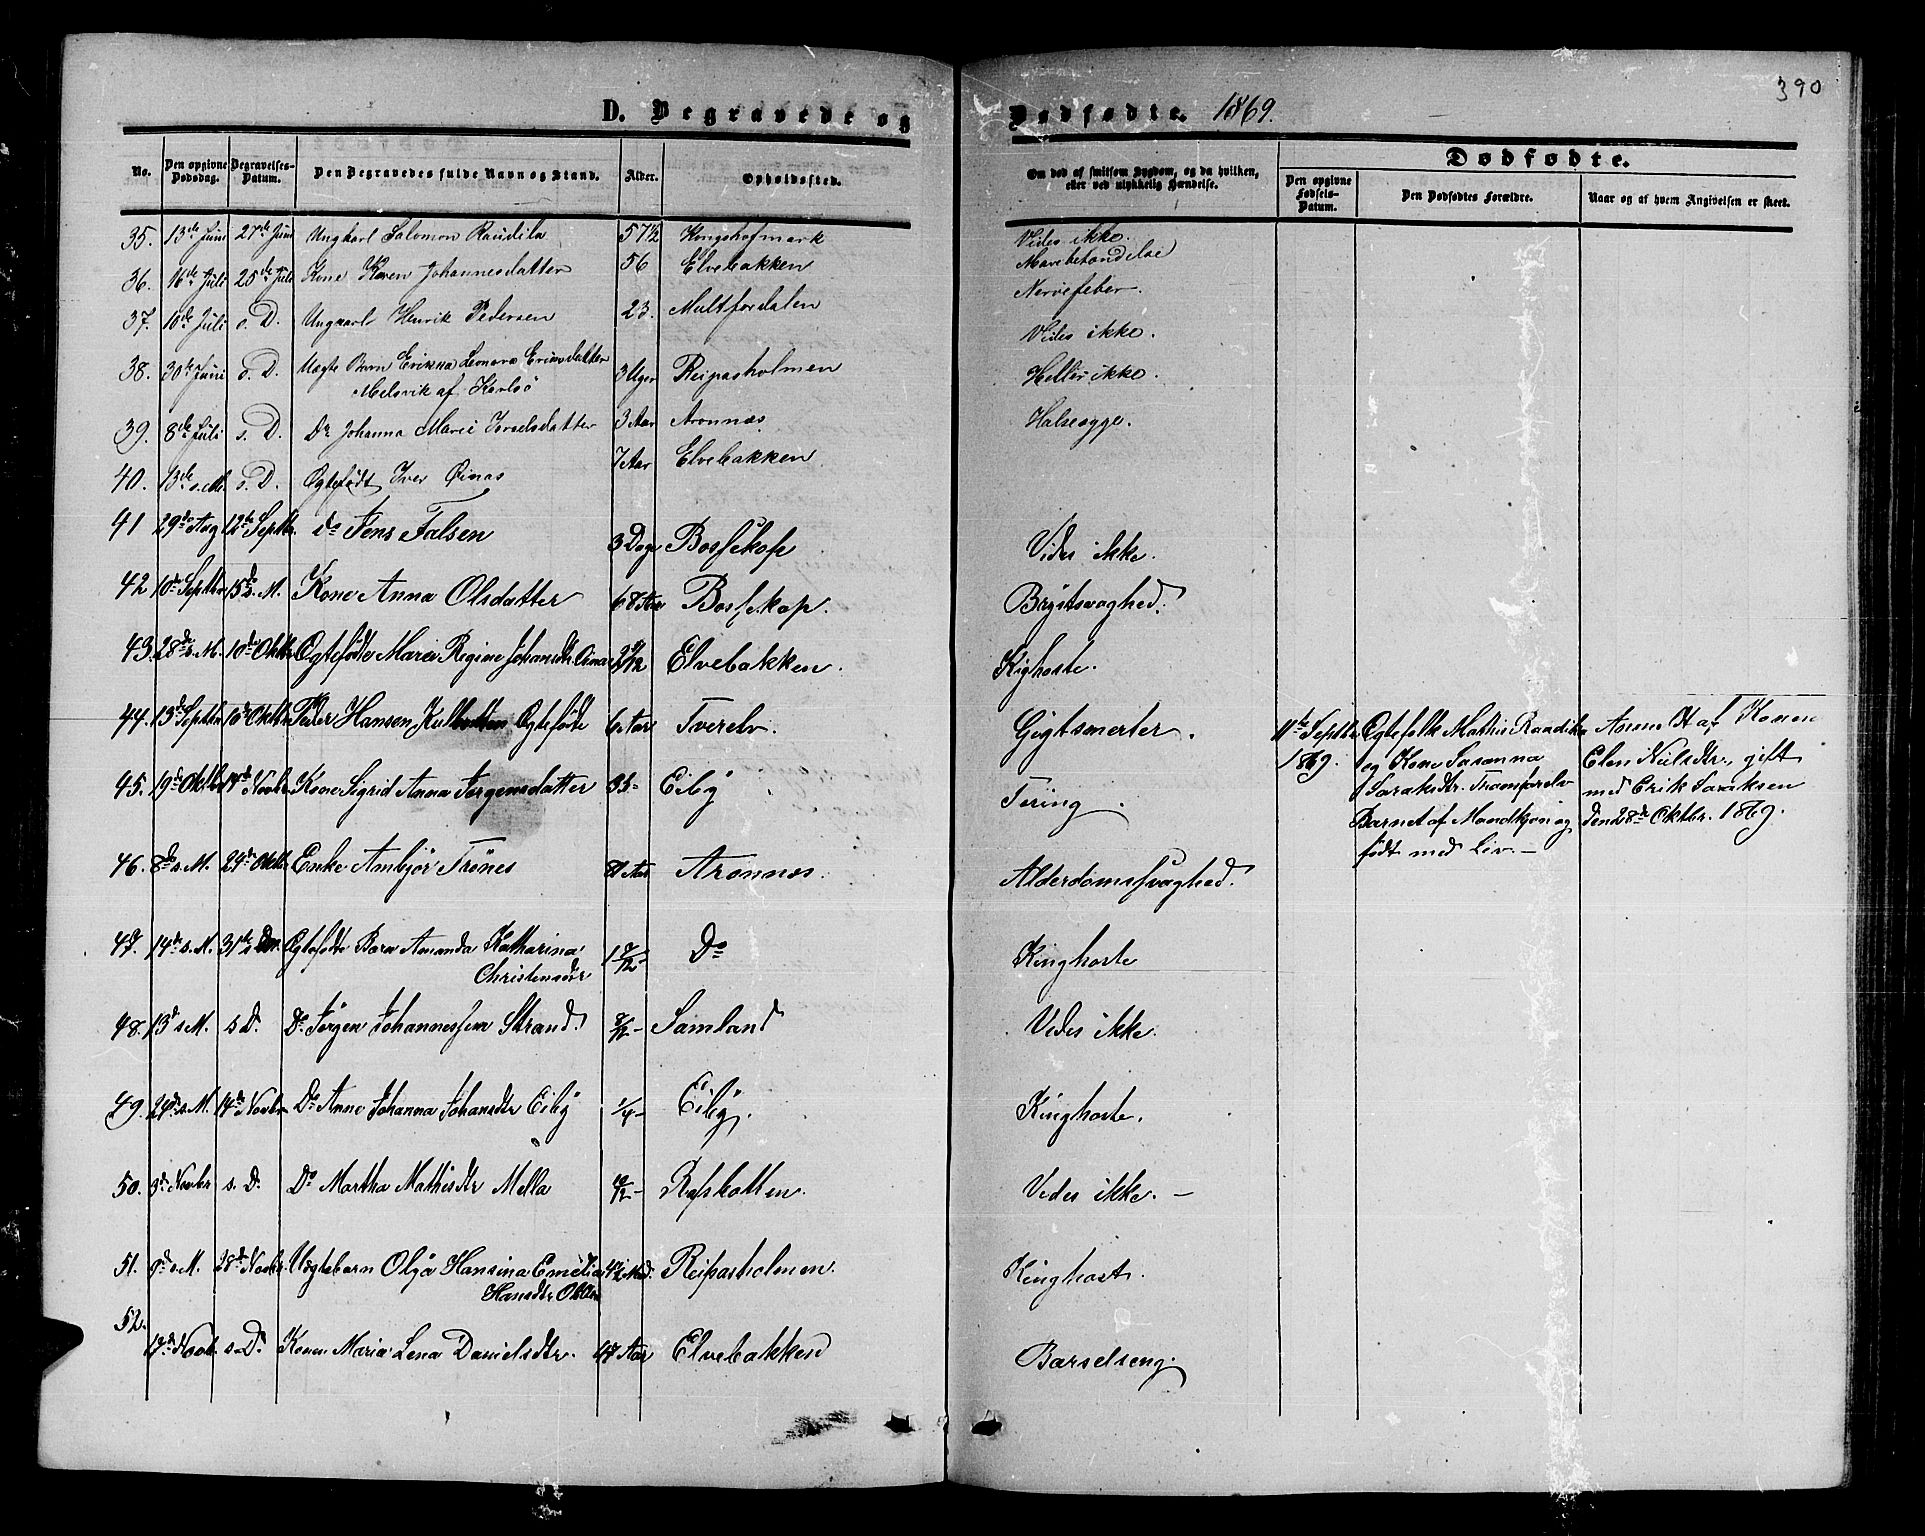 390
D. Begravede og Dødfødte. 1869.
No. | Den opgivne Dødsdag. | Begravelses-Datum. | Den Begravedes fulde Navn og Stand. | Alder. | Opholdssted. | Om død af smitsom Sygdom, og da hvilken, eller ved ulykkelig Hændelse. | Dødfødte. | Den opgivne Fødsels-Datum. | Den Dødfødtes Forældre. | Naar og af hvem Angivelsen er skeet.
35. 13de Juni 27de Juni Ungkarl Salomon Raudila 57 1/2 Kongshofmark Vides ikke.
36. 16de Juli 25de Juli Kone Karen Johannesdatter 56 Elvebakken Mavebetændelse
37. 10de Juli s. D. Ungkarl Henrik Pedersen 23. Multfordalen Nervefeber.
38. 30te Juni s. D. Uægte Barn Erikka Lenora Eriksdatter 3 Uger Reipasholmen Vides ikke.
Melsvik af Karlsö
39. 8de Juli s. D. Do Johanna Marie Israelsdatter 3 Aar Aronnæs Heller ikke.
40. 13de s. M. s. D. Ægtefødt Iver Qinas 7 Aar Elvebakken Halssyge.
41 29de Aug 12te Septbr. do Jens Falsen 3 Dage Bossekop Vides ikke.
42 10de Septbr 15de s. M. Kone Anna Olsdatter 68 Aar Bossekop. Brystsvaghed.
43. 28de s. M. 10de Oktbr Ægtefødte Maria Regine Johansdtr Qina 2 9/12 Elvebakken. Kighoste.
44. 13de Septbr 10de Oktbr Peder Hansen Ægtefødt 6 Aar Tverelv. Gigtsmerter. 11te Septbr Egtefolk Mathis Raudila Anm af Konen
1869. og Kone Susanna Elen Nielsdtr, gift
45. 19de Oktbr 14de Novbr Kone Sigrid Anna Jørgensdatter 35- Eiby Tæring. Saraksdtr. Tranfarelv med Erik Saraksen
Barnet af Mandkjøn og den 28de Oktbr. 1869.
født med Liv. —
46. 8de s. M. 29de Oktbr Enke Ambjør Trönes 81 Aar Aronnæs. Alderdomssvaghed.
47. 14de s. M. 31te Ægtefødte Barn Amanda Katharina 1 9/12- Do Kinghoste
Christensdtr
48. 13de s M. s D. Do Jørgen Johannessen Strand. 8/12- Samland Vedes ikke.
49. 24de s. M. 14de Novbr Do Anne Johanna Johansdtr Eiby 1/4- Eiby. Kinghoste.
50. 3de Novbr s. D. Do Martha Mathisdtr Mella 10/12- Rafsbotten. Vedes ikke. —
51. 9de s M. 28de Novbr. Uægtebarn Olga Hansina Emelia 4 1/2 Md. Reipasholmen. Kinghost.
Hansdtr
52. 17de Novb. s. D. Konen Maria Lena Danielsdtr. 47 Aar Elvebakken Barselseng.